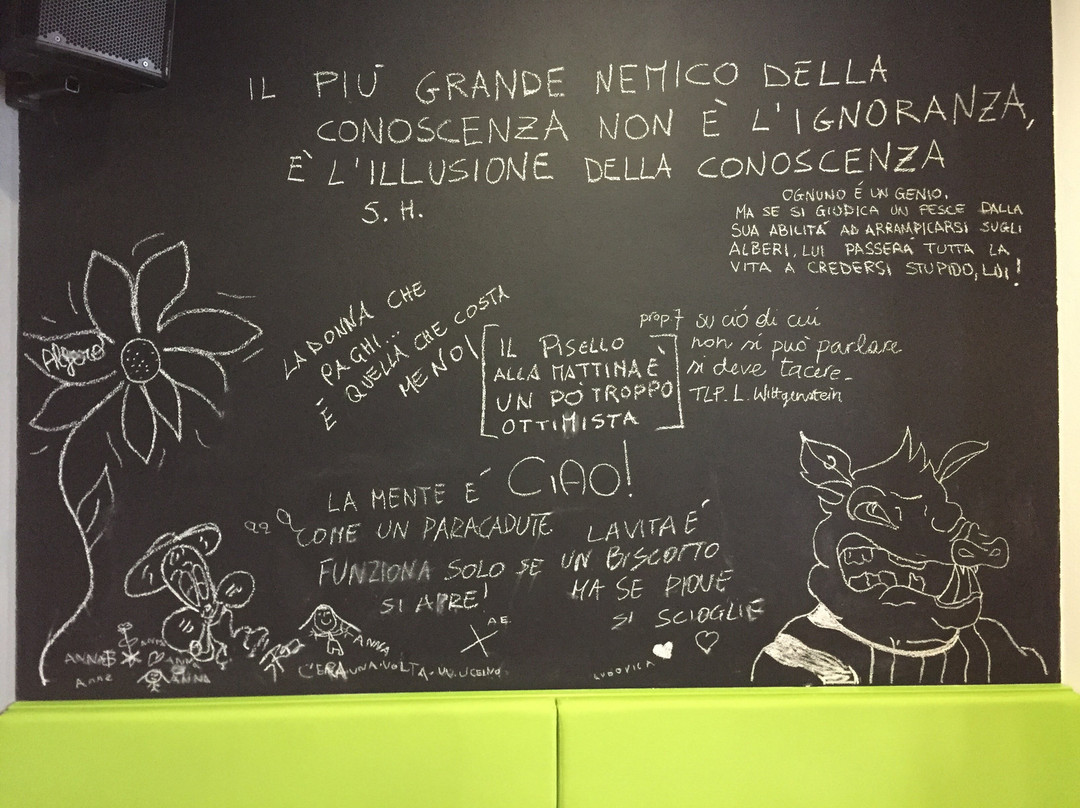 IL PIÙ GRANDE NEMICO DELLA
CONOSCENZA NON È L'IGNORANZA,
È L'ILLUSIONE DELLA CONOSCENZA
S. H.
OGNUNO É UN GENIO.
MA SE SI GIUDICA UN PESCE DALLA
SUA ABILITÁ AD ARRAMPICARSI SUGLI
ALBERI, LUI PASSERÁ TUTTA LA
VITA A CREDERSI STUPIDO, LUI!
LA DONNA CHE
PAGHI...
É QUELLA CHE COSTA
MENO!
IL PISELLO
ALLA MATTINA È
UN PO' TROPPO
OTTIMISTA
prop 7 su ció di cui
non si può parlare
si deve tacere.
TLP. L. Wittgenstein
CIAO!
LA MENTE E'
COME UN PARACADUTE
FUNZIONA SOLO SE
SI APRE!
A.E.
LA VITA E'
UN BISCOTTO
MA SE PIOVE
SI SCIOGLIE
LUDOVICA
ANNA
C'ERA UNA VOLTA
ANNA
Anne
ANNA